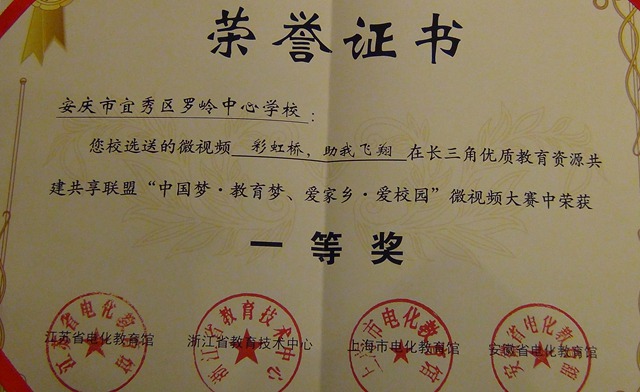 荣誉证书
安庆市宜秀区罗岭中心学校：
您校选送的微视频 彩虹桥，助我飞翔 在长三角优质教育资源共
建共享联盟“中国梦·教育梦、爱家乡·爱校园”微视频大赛中荣获
一等奖
江苏省电化教育馆 浙江省教育技术中心 上海市电化教育馆 安徽省电化教育馆
江苏省电化教育馆 浙江省教育技术中心 上海市电化教育馆 安徽省电化教育馆